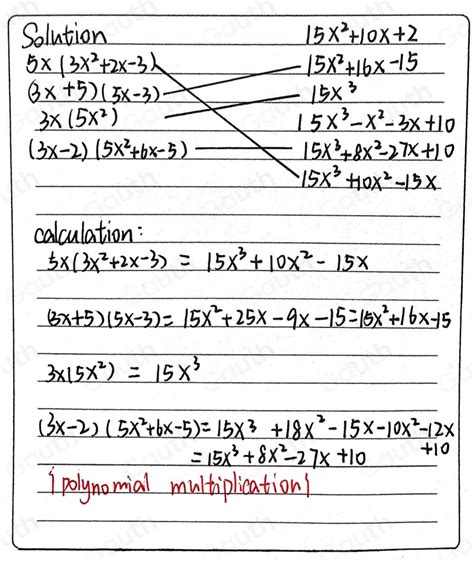 Solution 15x²+10x+2
5x(3x²+2x-3) 15x²+16x-15
(3x+5)(5x-3) 15x³
3x(5x²) 15x³-x²-3x+10
(3x-2)(5x²+6x-5) 15x³+8x²-27x+10
15x³+10x²-15x
calculation:
5x(3x²+2x-3) = 15x³+10x²-15x
(3x+5)(5x-3)=15x²+25x-9x-15=15x²+16x-15
3x(5x²) = 15x³
(3x-2)(5x²+6x-5)=15x³+18x²-15x-10x²-12x
+10
=15x³+8x²-27x+10
{polynomial multiplication}